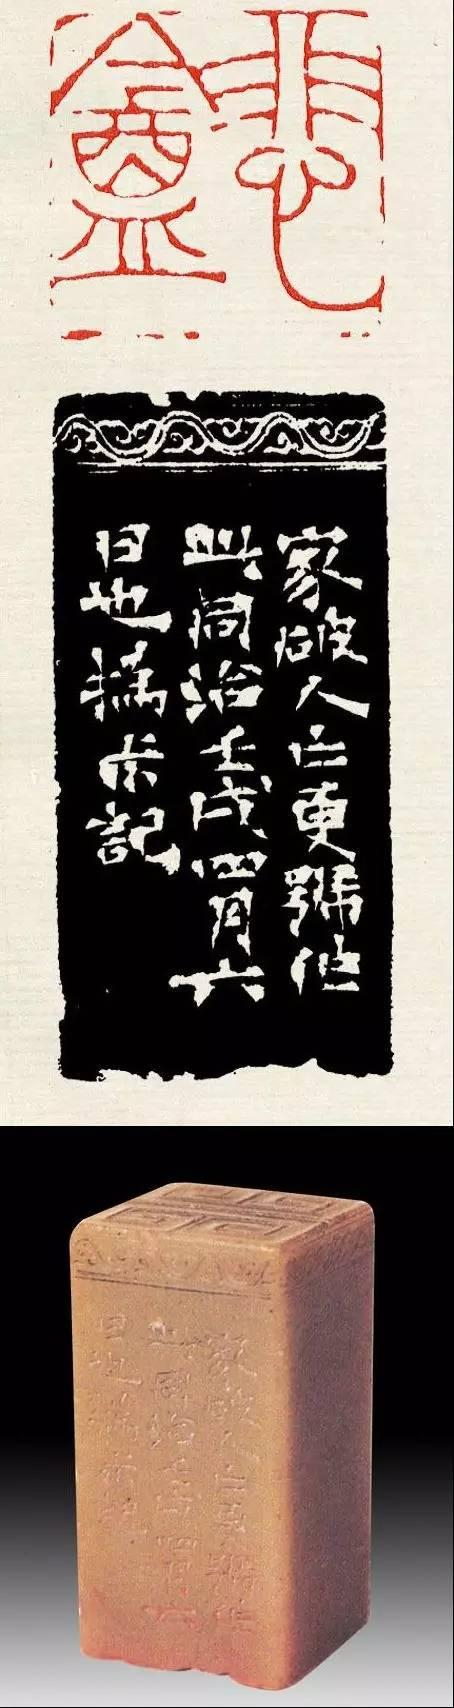 悲盦
家破人亡更號作
此同治壬戌四月六
日也撝尗記
家破人亡更號作
此同治壬戌四月六
日也撝尗記